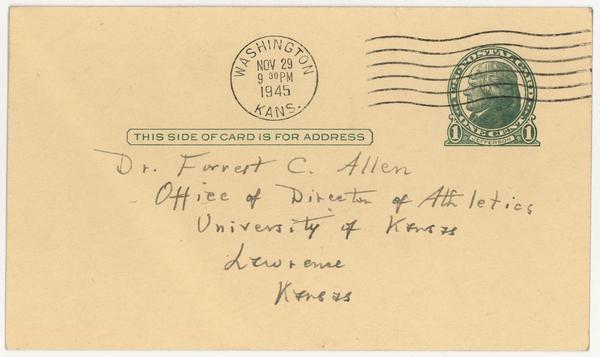 WASHINGTON
NOV 29
9 30 PM
1945
KANS.
U.S. POSTAL CARD
1 ONE CENT 1
JEFFERSON
THIS SIDE OF CARD IS FOR ADDRESS
Dr. Forrest C. Allen
Office of Director of Athletics
University of Kansas
Lawrence
Kansas